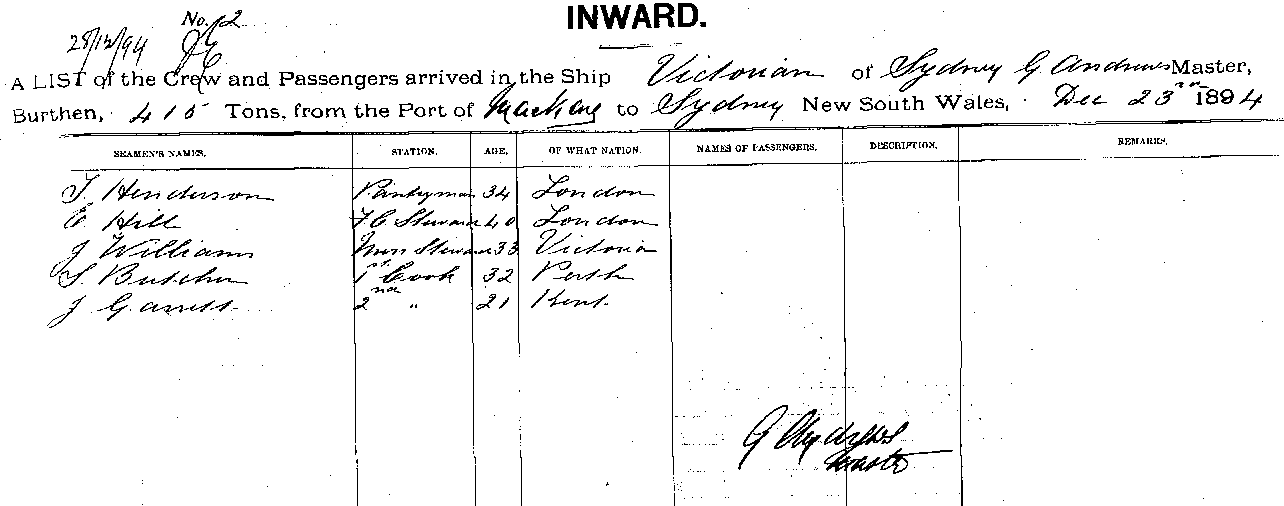 No. 2
INWARD.
28/12/94
A LIST of the Crew and Passengers arrived in the Ship Victorian of Sydney G Andrews Master,
Burthen, 415 Tons, from the Port of Mackay to Sydney New South Wales, Dec 23rd 1894
SEAMEN'S NAMES. STATION. AGE. OF WHAT NATION. NAMES OF PASSENGERS. DESCRIPTION. REMARKS.
T. Henderson Pantryman 34 London
E Hill FC Steward 40 London
J Williams Mess Steward 33 Victoria
S. Butcher 1st Cook 32 Perth
J Garrett 2nd " 21 Kent
G Andrews
Master